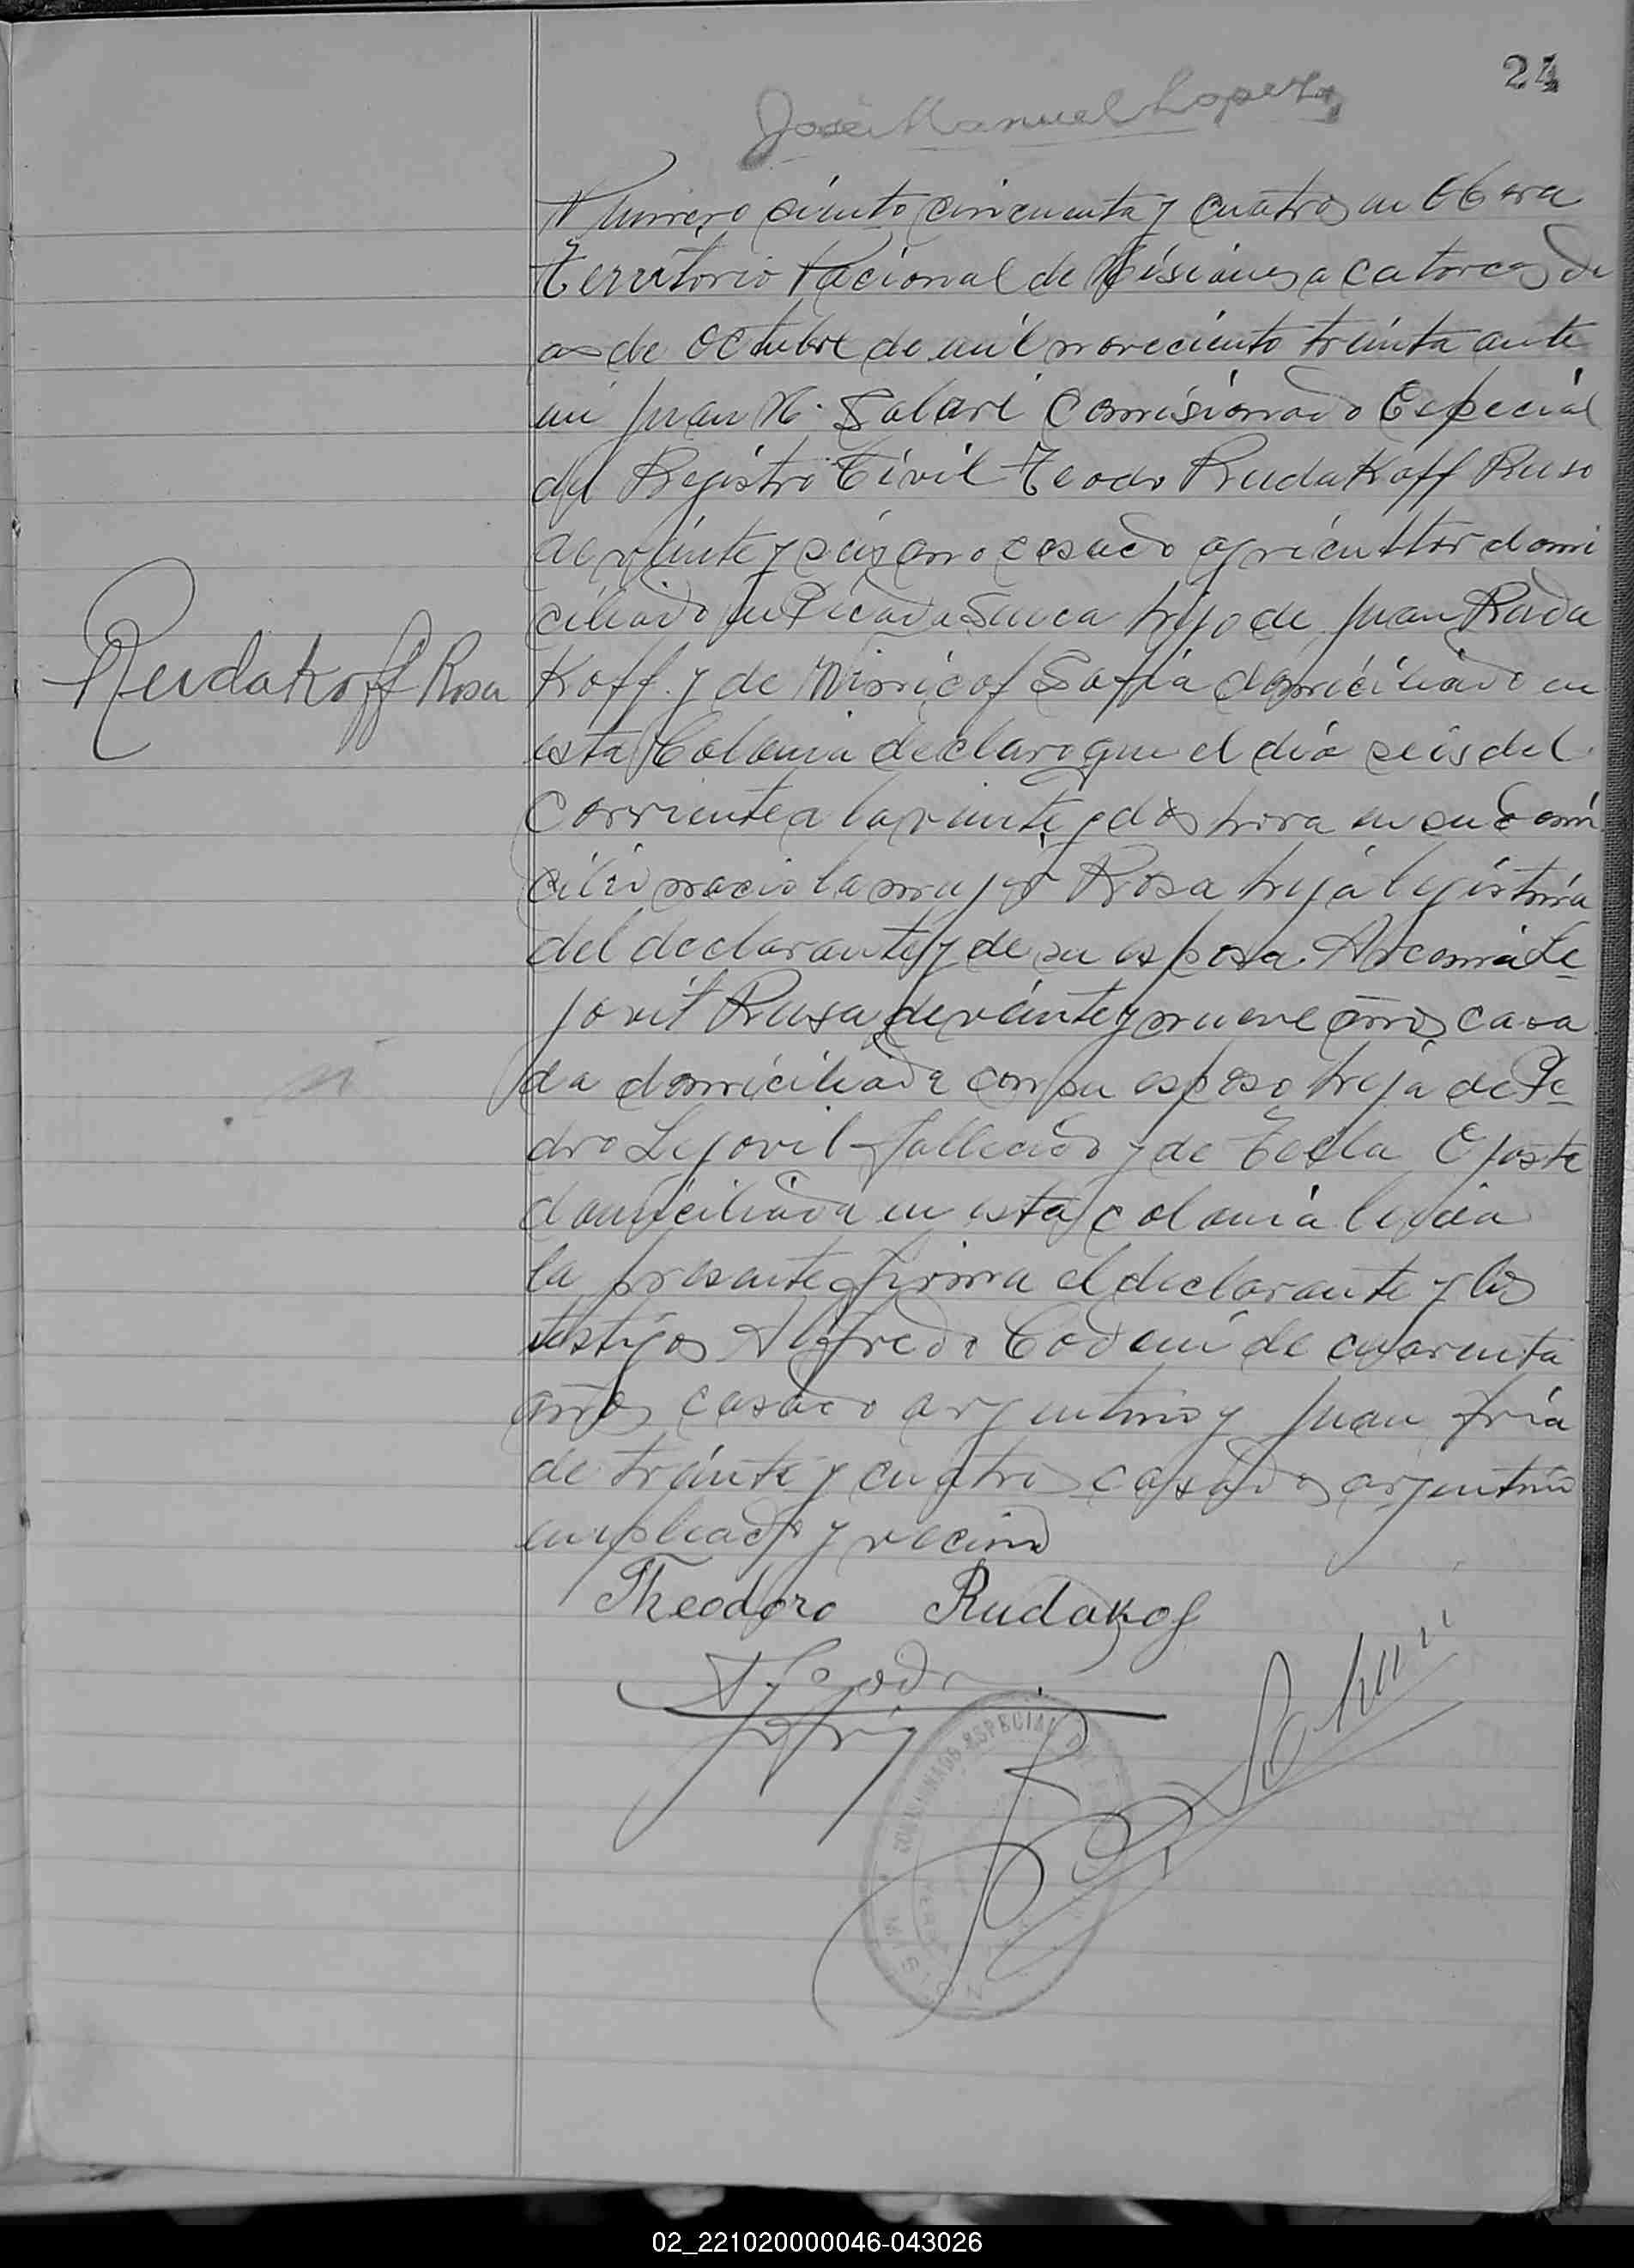 24
José Manuel Lopez
Numero siento cincuenta y cuatro en Obera
Territorio Nacional de Misiones a catorce di
as de Octubre de mil noveciento treinta ante
mi Juan N. Galari Comisionado Especial
del Registro Civil Teodo Rudakoff Ruso
de veinte y seis año casado agricultor domi
ciliado en Picada Sueca hijo de Juan Ruda
Koff y de Sofia domiciliado en
esta Colonia declaro que el dia seis del
Corriente a la veinte y dos hora en su Domi
cilio nacio la mujer Rosa hija legistima
Rudakoff Rosa
del declarante y de su esposa Le
jovil Rusa de veinte y nueve años casa
da domiciliada con su esposo hija de Pe
dro Lejovil fallecido y de Tecla
domiciliada en esta colonia leida
la presente firma el declarante y los
testigos Alfredo Codeni de cuarenta
años casado argentino y Juan Fria
de treinte y cuatro casado argentino
empleado y vecino
Theodoro Rudakof
COMISIONADO ESPECIAL